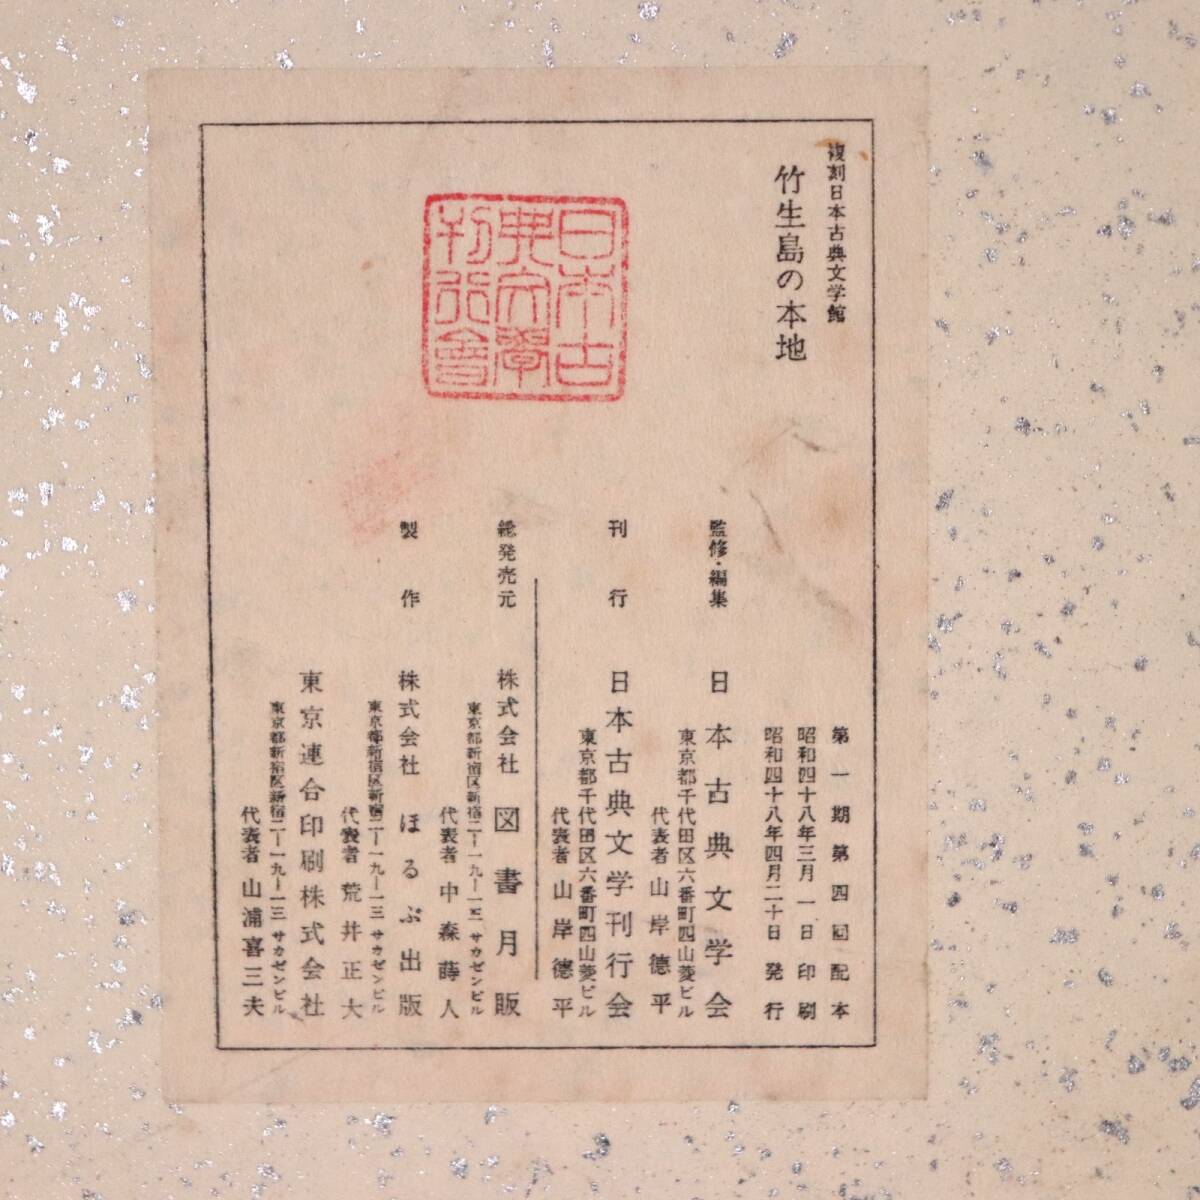 復刻日本古典文学館
竹生島の本地
日本古
典文學
刊行會
第一期第四回配本
昭和四十八年三月一日印刷
昭和四十八年四月二十日発行
監修・編集 日本古典文学会
東京都千代田区六番町四山菱ビル
代表者 山岸德平
刊行 日本古典文学刊行会
東京都千代田区六番町四山菱ビル
代表者 山岸德平
総発売元 株式会社 図書月販
東京都新宿区新宿二ー一九ー一三 サカゼンビル
代表者 中森蒔人
製作 株式会社 ほるぷ出版
東京都新宿区新宿二ー一九ー一三 サカゼンビル
代表者 荒井正大
東京連合印刷株式会社
東京都新宿区新宿二ー一九ー一三 サカゼンビル
代表者 山浦喜三夫